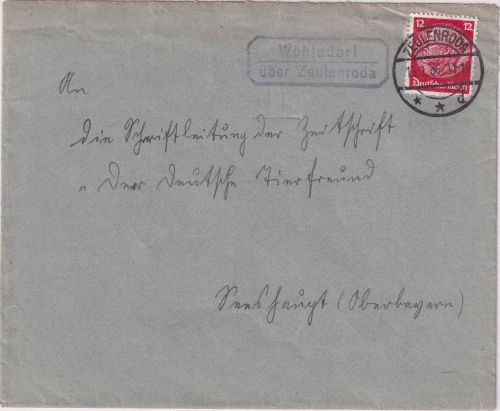 12 12
Deutsches Reich
ZEULENRODA
d
Wöhlsdorf
über Zeulenroda
An
die Schriftleitung der Zeitschrift
„Der Deutsche Tierfreund
Seeshaupt (Oberbayern)